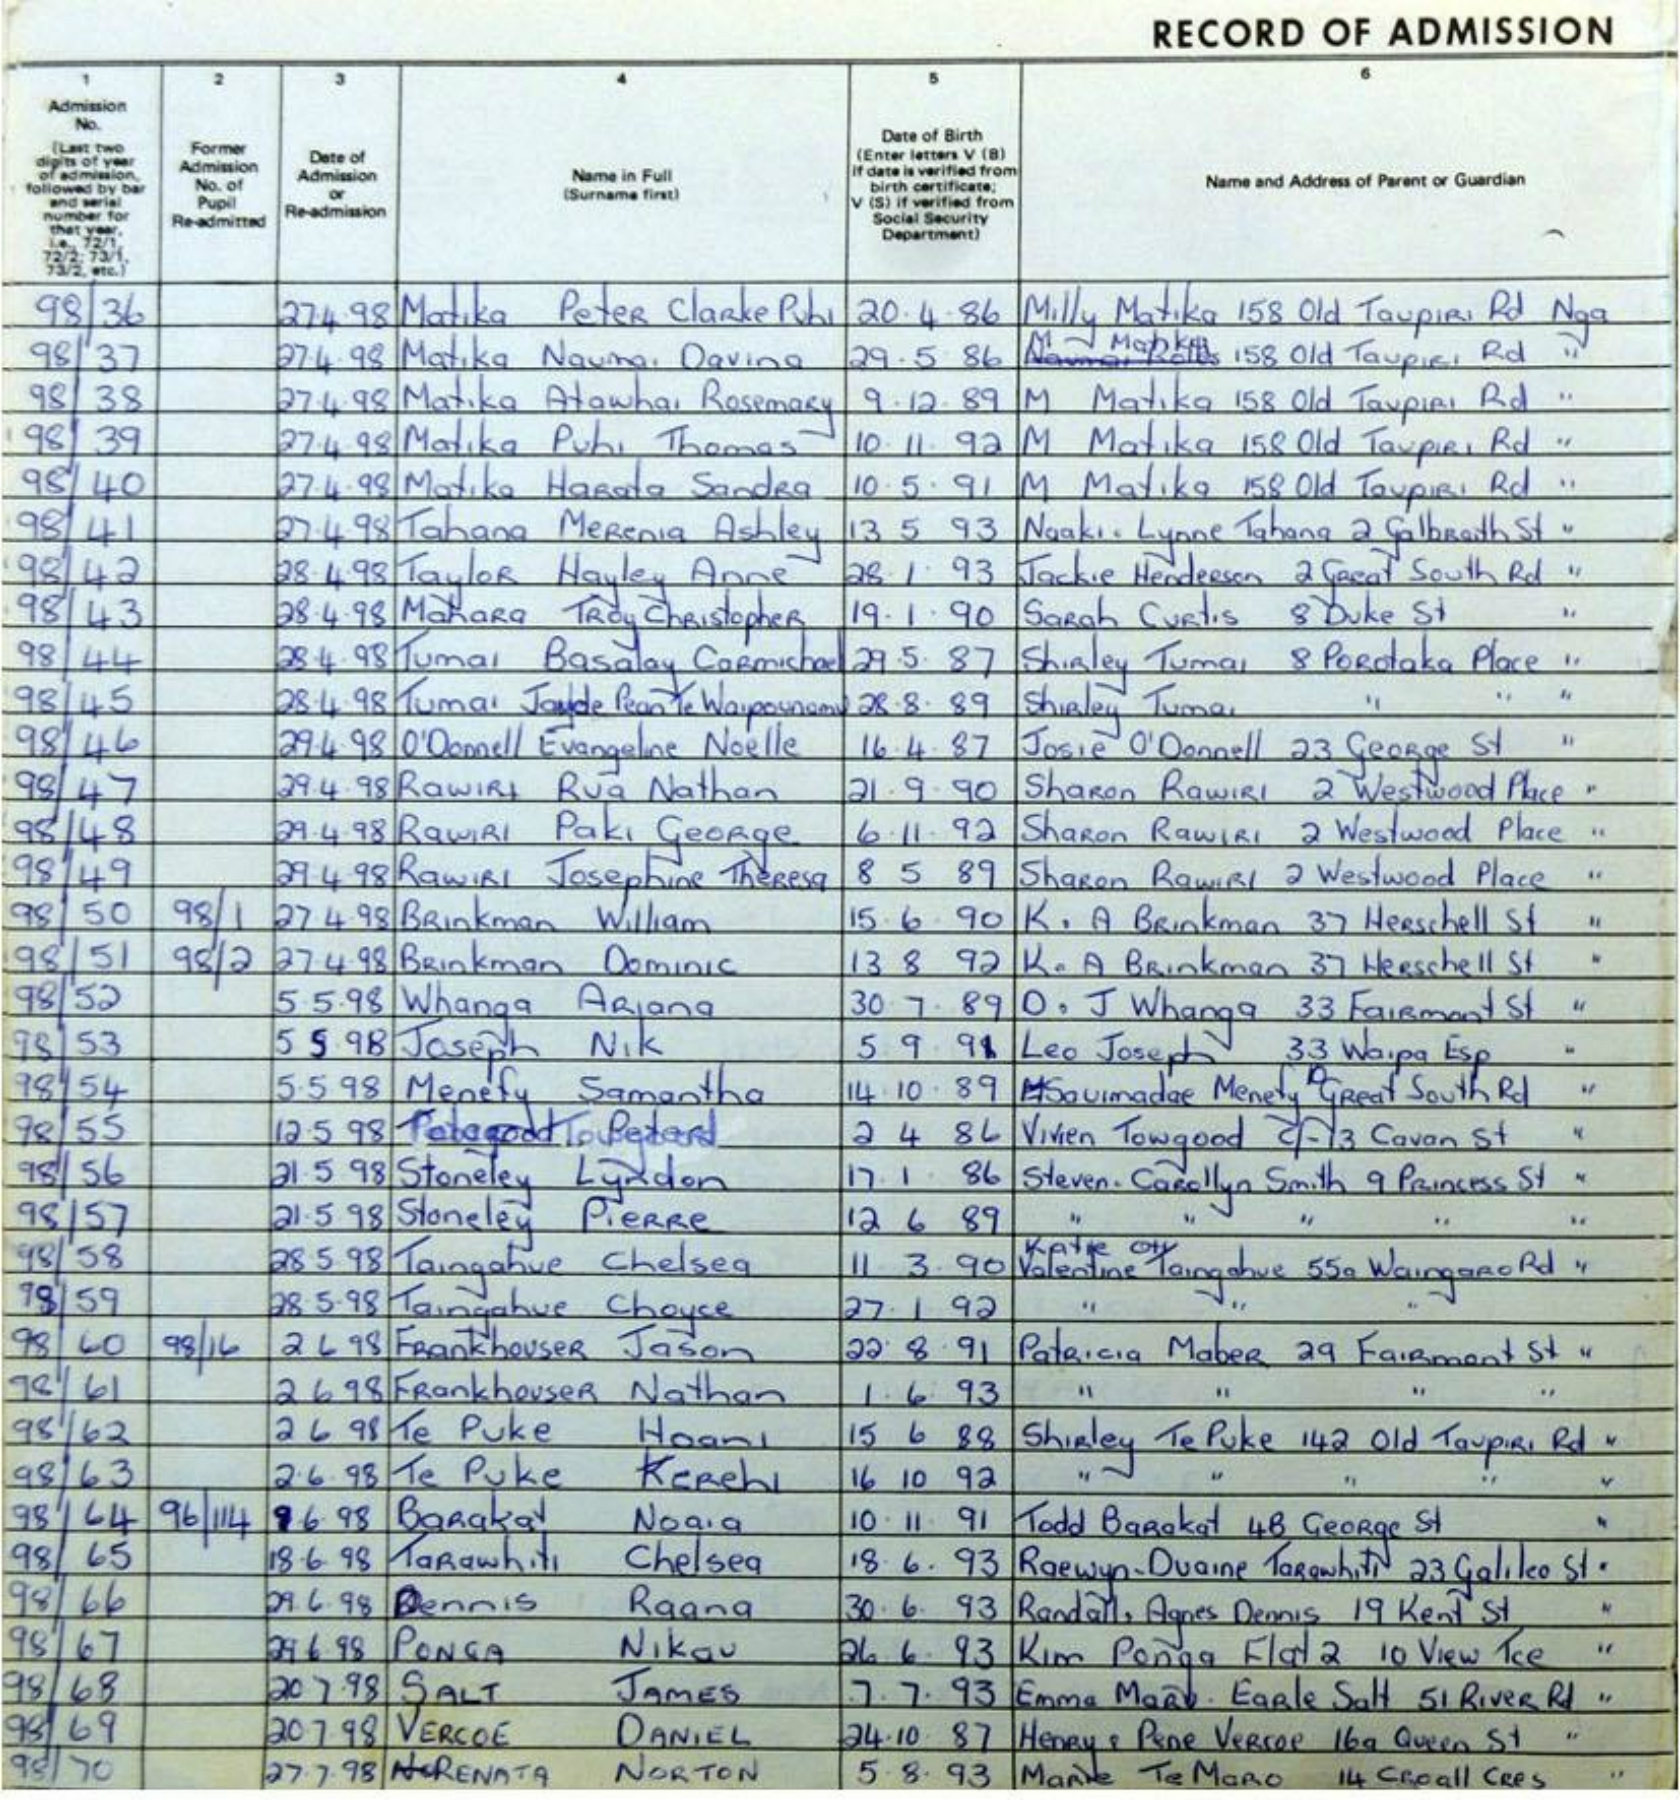 RECORD OF ADMISSION
1 2 3 4 5 6
Admission No. (Last two digits of year of admission, followed by bar and serial number for that year, i.e., 72/1, 72/2; 73/1, 73/2, etc.)
Former Admission No. of Pupil Re-admitted
Date of Admission or Re-admission
Name in Full (Surname first)
Date of Birth (Enter letters V (B) if date is verified from birth certificate; V (S) if verified from Social Security Department)
Name and Address of Parent or Guardian
98/36 27.4.98 Matika Peter Clarke Puhi 20.4.86 Milly Matika 158 Old Taupiri Rd Nga
98/37 27.4.98 Matika Naumai Davina 29.5 86 M Matika 158 Old Taupiri Rd "
98/38 27.4.98 Matika Atawhai Rosemary 9.12.89 M Matika 158 Old Taupiri Rd "
98/39 27.4.98 Matika Puhi Thomas 10.11.92 M Matika 158 Old Taupiri Rd "
98/40 27.4.98 Matika Harata Sandra 10.5.91 M Matika 158 Old Taupiri Rd "
98/41 27.4.98 Tahana Merenia Ashley 13 5 93 Ngaki. Lynne Tahana 2 Galbraith St "
98/42 28.4.98 Taylor Hayley Anne 28.1.93 Jackie Henderson 2 Great South Rd "
98/43 28.4.98 Mahara Troy Christopher 19.1.90 Sarah Curtis 8 Duke St "
98/44 28.4.98 Tumai Basalay Carmichael 29.5.87 Shirley Tumai 8 Porotaka Place "
98/45 28.4.98 Tumai Jayde Pean Te Waipounamu 28.8.89 Shirley Tumai " " "
98/46 29.4.98 O'Donnell Evangeline Noelle 16.4.87 Josie O'Donnell 23 George St "
98/47 29.4.98 Rawiri Rua Nathan 21.9.90 Sharon Rawiri 2 Westwood Place "
98/48 29.4.98 Rawiri Paki George 6.11.92 Sharon Rawiri 2 Westwood Place "
98/49 29.4.98 Rawiri Josephine Theresa 8 5 89 Sharon Rawiri 2 Westwood Place "
98/50 98/1 27.4.98 Brinkman William 15.6.90 K. A Brinkman 37 Herschell St "
98/51 98/2 27.4.98 Brinkman Dominic 13 8 92 K. A Brinkman 37 Herschell St "
98/52 5.5.98 Whanga Ariana 30.7.89 D. J Whanga 33 Fairmont St "
98/53 5 5.98 Joseph Nik 5 9 91 Leo Joseph 33 Waipa Esp "
98/54 5.5.98 Menefy Samantha 14.10.89 Menefy Great South Rd "
98/55 12.5.98 2 4 86 Vivien Towgood 73 Cavan St "
98/56 21.5.98 Stoneley Lyndon 17.1.86 Steven. Carollyn Smith 9 Princess St "
98/57 21.5.98 Stoneley Pierre 12 6 89 " " " " "
98/58 28.5.98 Taingahue Chelsea 11 3.90 Katie Valentine Taingahue 55a Waingaro Rd "
98/59 28.5.98 Taingahue Choyce 27.1.92 " " "
98/60 98/16 2 6 98 Frankhouser Jason 22.8.91 Patricia Maber 29 Fairmont St "
98/61 2 6 98 Frankhouser Nathan 1.6 93 " " " "
98/62 2 6 98 Te Puke Hoani 15 6 88 Shirley Te Puke 142 Old Taupiri Rd "
98/63 2.6.98 Te Puke Kerehi 16 10 92 " " " " "
98/64 96/114 9.6.98 Barakat Noaia 10.11.91 Todd Barakat 4B George St "
98/65 18.6.98 Tarawhiti Chelsea 18.6.93 Raewyn-Duaine Tarawhiti 23 Galileo St "
98/66 29.6.98 Dennis Raana 30.6.93 Randall, Agnes Dennis 19 Kent St "
98/67 29.6.98 Ponga Nikau 26 6 93 Kim Ponga Flat 2 10 View Tce "
98/68 20 7.98 Salt James 7.7.93 Emma Earle Salt 51 River Rd "
98/69 20 7.98 Vercoe Daniel 24.10.87 Henry & Pene Vercoe 16a Queen St "
98/70 27.7.98 Renata Norton 5.8.93 Marie Te Moro 14 Croall Cres "